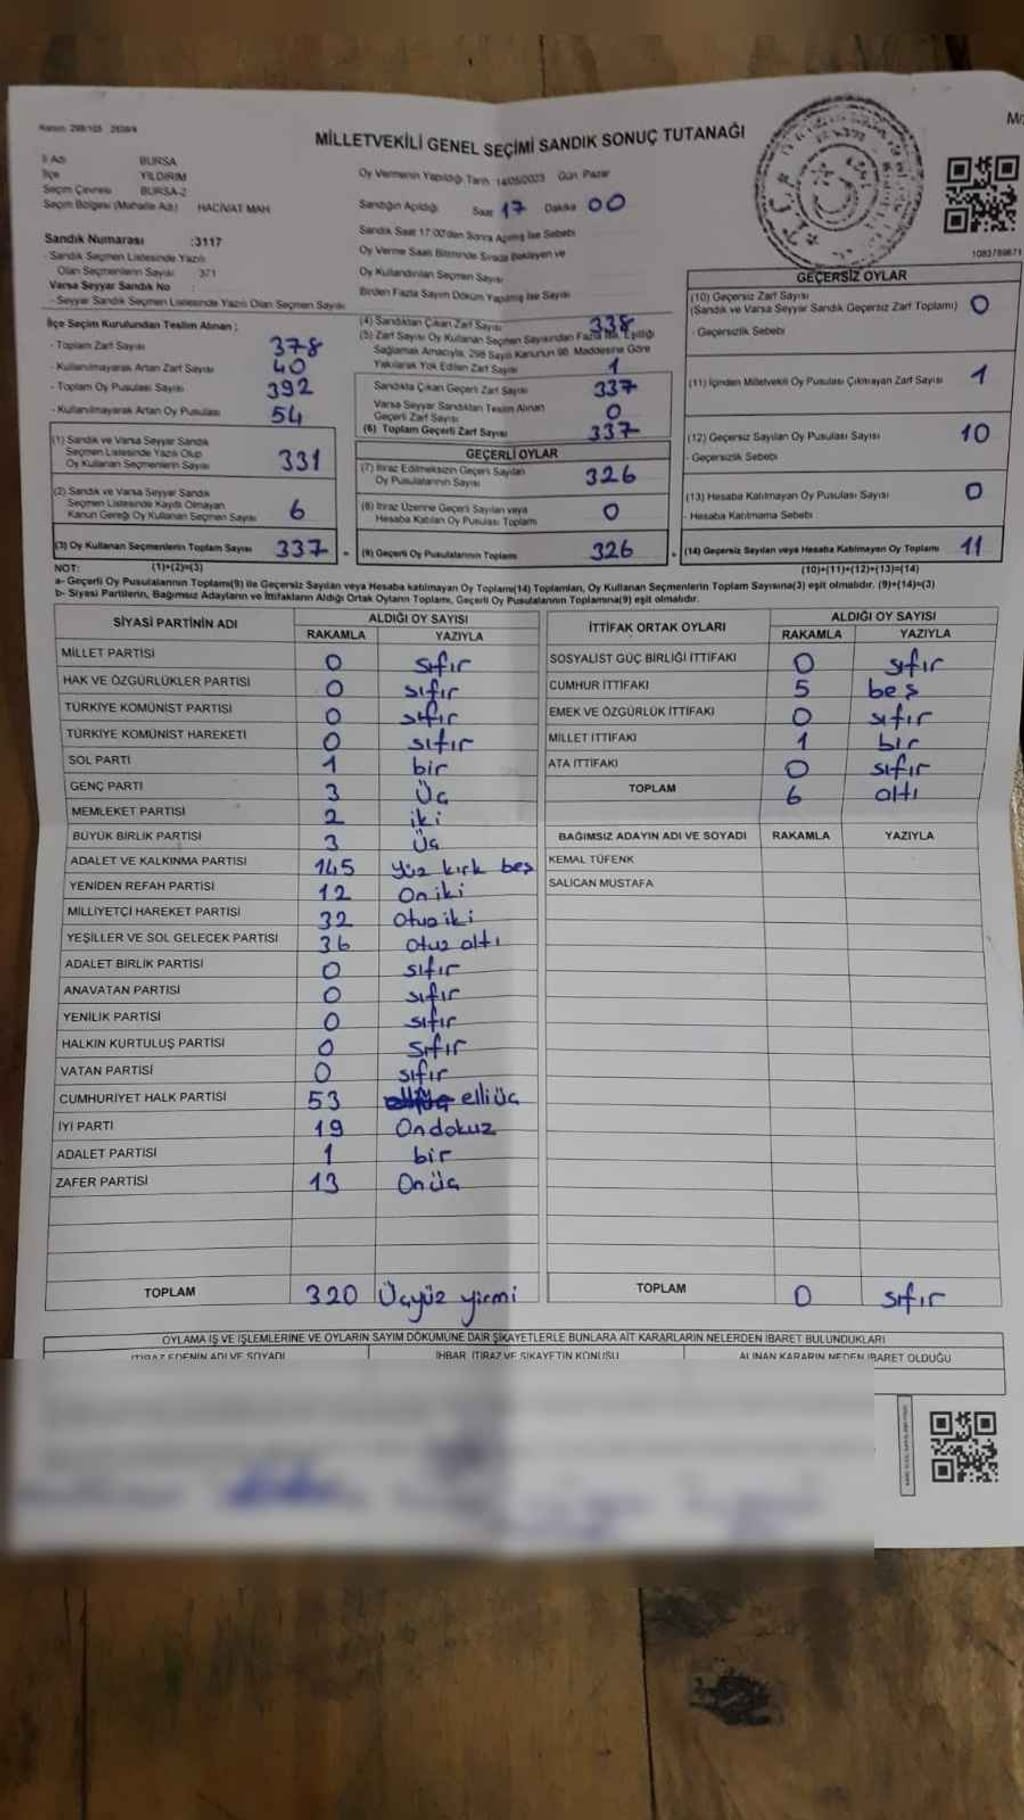 Kanun: 298/105 2839/4
MİLLETVEKİLİ GENEL SEÇİMİ SANDIK SONUÇ TUTANAĞI
İl Adı BURSA
İlçe YILDIRIM
Seçim Çevresi BURSA-2
Seçim Bölgesi (Mahalle Adı) HACİVAT MAH
Sandık Numarası :3117
- Sandık Seçmen Listesinde Yazılı
Olan Seçmenlerin Sayısı 371
Varsa Seyyar Sandık No
- Seyyar Sandık Seçmen Listesinde Yazılı Olan Seçmen Sayısı
Oy Vermenin Yapıldığı Tarih 14/05/2023 Gün Pazar
Sandığın Açıldığı Saat 17 Dakika 00
Sandık Saat 17:00'den Sonra Açılmış İse Sebebi
Oy Verme Saati Bitiminde Sırada Bekleyen ve
Oy Kullandırılan Seçmen Sayısı
Birden Fazla Sayım Döküm Yapılmış İse Sayısı
1083789671
İlçe Seçim Kurulundan Teslim Alınan ;
- Toplam Zarf Sayısı 378
- Kullanılmayarak Artan Zarf Sayısı 40
- Toplam Oy Pusulası Sayısı 392
- Kullanılmayarak Artan Oy Pusulası 54
(1) Sandık ve Varsa Seyyar Sandık
Seçmen Listesinde Yazılı Olup
Oy Kullanan Seçmenlerin Sayısı 331
(2) Sandık ve Varsa Seyyar Sandık
Seçmen Listesinde Kayıtlı Olmayan
Kanun Gereği Oy Kullanan Seçmen Sayısı 6
(3) Oy Kullanan Seçmenlerin Toplam Sayısı 337
(4) Sandıktan Çıkan Zarf Sayısı 338
(5) Zarf Sayısı Oy Kullanan Seçmen Sayısından Fazla ise, Eşitliği
Sağlamak Amacıyla, 298 Sayılı Kanunun 98. Maddesine Göre
Yakılarak Yok Edilen Zarf Sayısı 1
Sandıkta Çıkan Geçerli Zarf Sayısı 337
Varsa Seyyar Sandıktan Teslim Alınan
Geçerli Zarf Sayısı 0
(6) Toplam Geçerli Zarf Sayısı 337
GEÇERLİ OYLAR
(7) İtiraz Edilmeksizin Geçerli Sayılan
Oy Pusulalarının Sayısı 326
(8) İtiraz Üzerine Geçerli Sayılan veya
Hesaba Katılan Oy Pusulası Toplamı 0
= (9) Geçerli Oy Pusulalarının Toplamı 326
GEÇERSİZ OYLAR
(10) Geçersiz Zarf Sayısı
(Sandık ve Varsa Seyyar Sandık Geçersiz Zarf Toplamı) 0
- Geçersizlik Sebebi
(11) İçinden Milletvekili Oy Pusulası Çıkmayan Zarf Sayısı 1
(12) Geçersiz Sayılan Oy Pusulası Sayısı 10
- Geçersizlik Sebebi
(13) Hesaba Katılmayan Oy Pusulası Sayısı 0
- Hesaba Katılmama Sebebi
+ (14) Geçersiz Sayılan veya Hesaba Katılmayan Oy Toplamı 11
NOT: (1)+(2)=(3) (10)+(11)+(12)+(13)=(14)
a- Geçerli Oy Pusulalarının Toplamı(9) ile Geçersiz Sayılan veya Hesaba katılmayan Oy Toplamı(14) Toplamları, Oy Kullanan Seçmenlerin Toplam Sayısına(3) eşit olmalıdır. (9)+(14)=(3)
b- Siyasi Partilerin, Bağımsız Adayların ve İttifakların Aldığı Ortak Oyların Toplamı, Geçerli Oy Pusulalarının Toplamına(9) eşit olmalıdır.
SİYASİ PARTİNİN ADI ALDIĞI OY SAYISI
RAKAMLA YAZIYLA
MİLLET PARTİSİ 0 sıfır
HAK VE ÖZGÜRLÜKLER PARTİSİ 0 sıfır
TÜRKİYE KOMÜNİST PARTİSİ 0 sıfır
TÜRKİYE KOMÜNİST HAREKETİ 0 sıfır
SOL PARTİ 1 bir
GENÇ PARTİ 3 Üç
MEMLEKET PARTİSİ 2 iki
BÜYÜK BİRLİK PARTİSİ 3 Üç
ADALET VE KALKINMA PARTİSİ 145 yüz kırk beş
YENİDEN REFAH PARTİSİ 12 Oniki
MİLLİYETÇİ HAREKET PARTİSİ 32 Otuziki
YEŞİLLER VE SOL GELECEK PARTİSİ 36 otuz altı
ADALET BİRLİK PARTİSİ 0 sıfır
ANAVATAN PARTİSİ 0 sıfır
YENİLİK PARTİSİ 0 sıfır
HALKIN KURTULUŞ PARTİSİ 0 sıfır
VATAN PARTİSİ 0 sıfır
CUMHURİYET HALK PARTİSİ 53 elliüç
İYİ PARTİ 19 Ondokuz
ADALET PARTİSİ 1 bir
ZAFER PARTİSİ 13 Onüç
TOPLAM 320 Üçyüz yirmi
İTTİFAK ORTAK OYLARI ALDIĞI OY SAYISI
RAKAMLA YAZIYLA
SOSYALİST GÜÇ BİRLİĞİ İTTİFAKI 0 sıfır
CUMHUR İTTİFAKI 5 beş
EMEK VE ÖZGÜRLÜK İTTİFAKI 0 sıfır
MİLLET İTTİFAKI 1 bir
ATA İTTİFAKI 0 sıfır
TOPLAM 6 altı
BAĞIMSIZ ADAYIN ADI VE SOYADI RAKAMLA YAZIYLA
KEMAL TÜFENK
SALİCAN MUSTAFA
TOPLAM 0 sıfır
OYLAMA İŞ VE İŞLEMLERİNE VE OYLARIN SAYIM DÖKÜMÜNE DAİR ŞİKAYETLERLE BUNLARA AİT KARARLARIN NELERDEN İBARET BULUNDUKLARI
İTİRAZ EDENİN ADI VE SOYADI İHBAR, İTİRAZ VE ŞİKAYETİN KONUSU ALINAN KARARIN NEDEN İBARET OLDUĞU